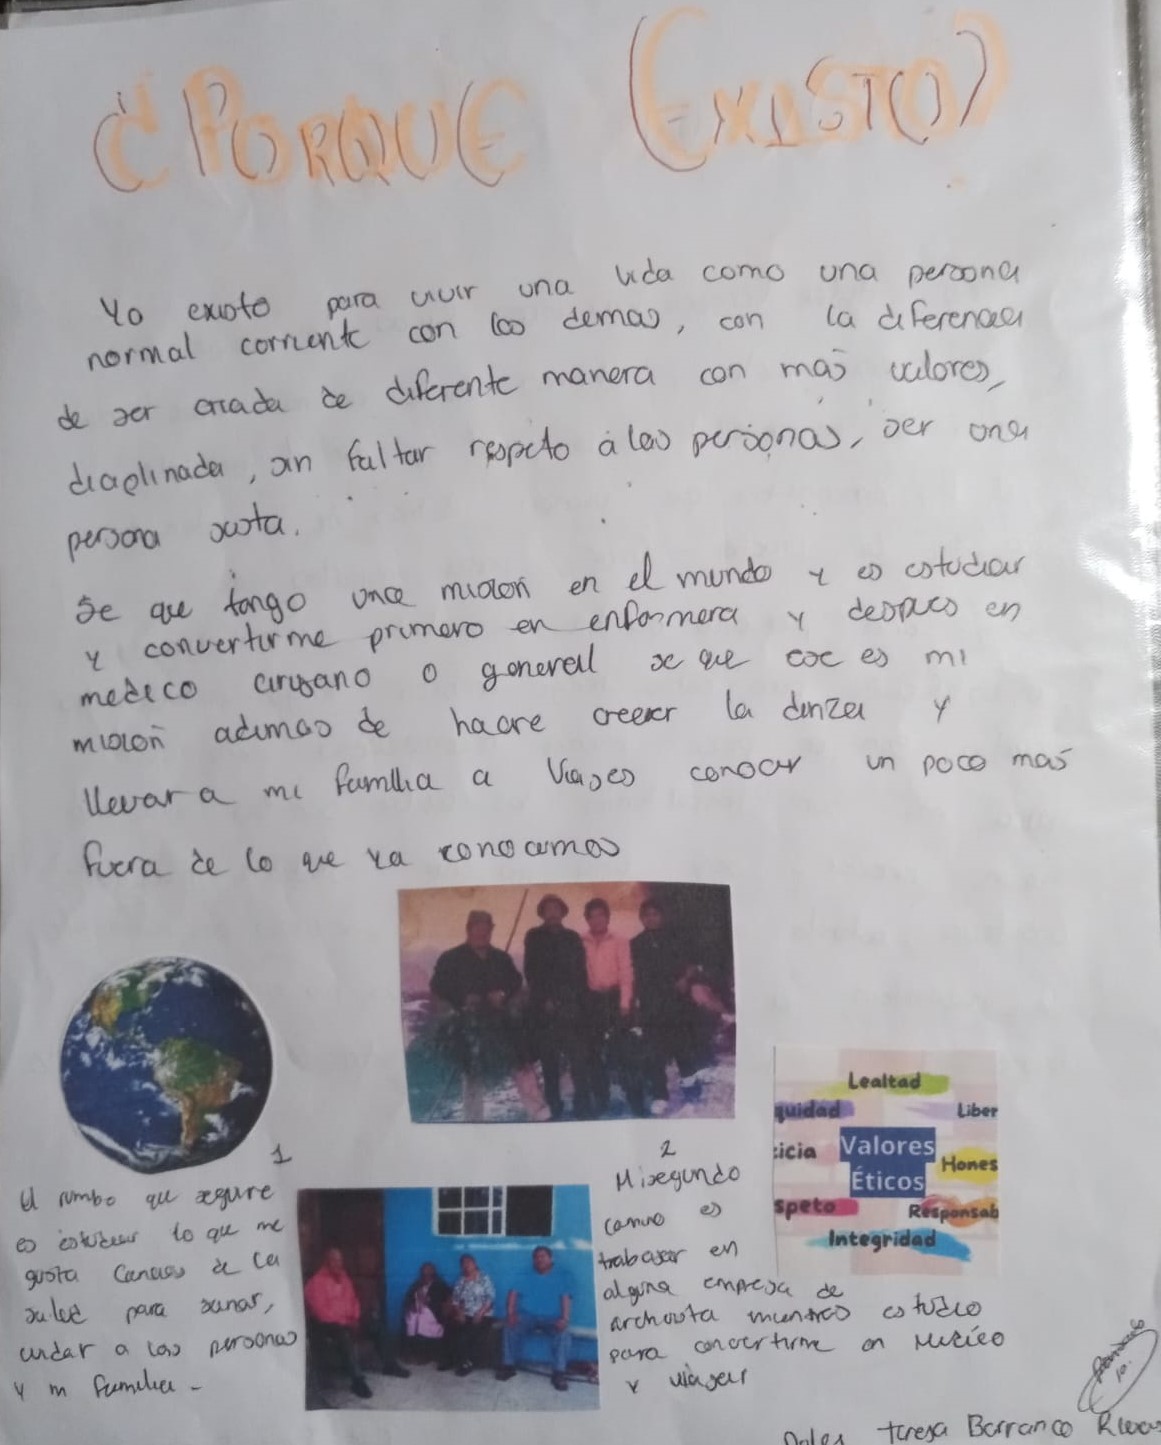 ¿PORQUE EXISTO?
Yo existo para vivir una vida como una persona
normal corriente con los demas, con la diferencia
de ser criada de diferente manera con más valores,
disciplinada, sin faltar respeto a las personas, ser una
persona justa.
Se que tengo una misión en el mundo y es estudiar
y convertirme primero en enfermera y despues en
medico cirujano o general se que ese es mi
misión ademas de hacre creecer la danza y
llevar a mi familia a Viajes conocer un poco más
fuera de lo que ya conocemos
1
El rumbo que seguire
es estudiar lo que me
gusta Cencias de la
salud para sanar,
cuidar a las personas
y mi familia -
2
Mi segundo
camino es
trabajar en
alguna empresa de
archivista mientras estudio
para convertirme en Medico
y viajar
Lealtad
quidad
Liber
icia
Valores
Éticos
Hones
speto
Responsab
Integridad
Teresa Barranco